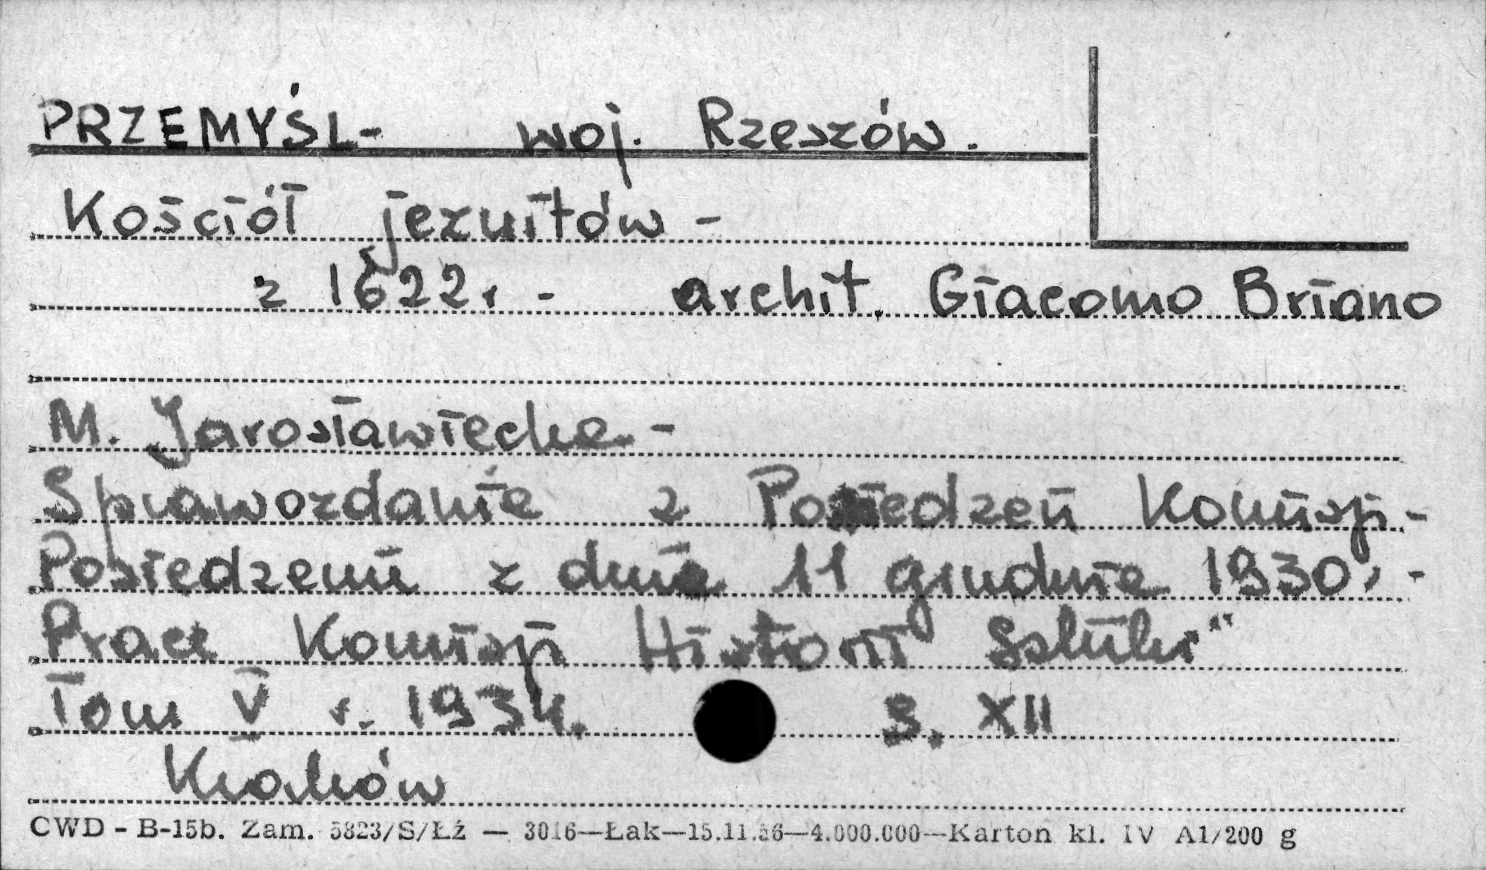 PRZEMYŚL - woj. Rzeszów.
Kościół jezuitów -
z 1622 r - archit. Giacomo Briano
M. Jarosławiecka -
Sprawozdanie z Posiedzeń Komisji -
Posiedzenie z dnia 11 grudnia 1930r -
Prace Komisji Historii Sztuki"
Tom V r. 1934. S. XII
Kraków
CWD - B-15b. Zam. 5823/S/Łź — 3016—Łak—15.11.56—4.000.000—Karton kl. IV A1/200 g